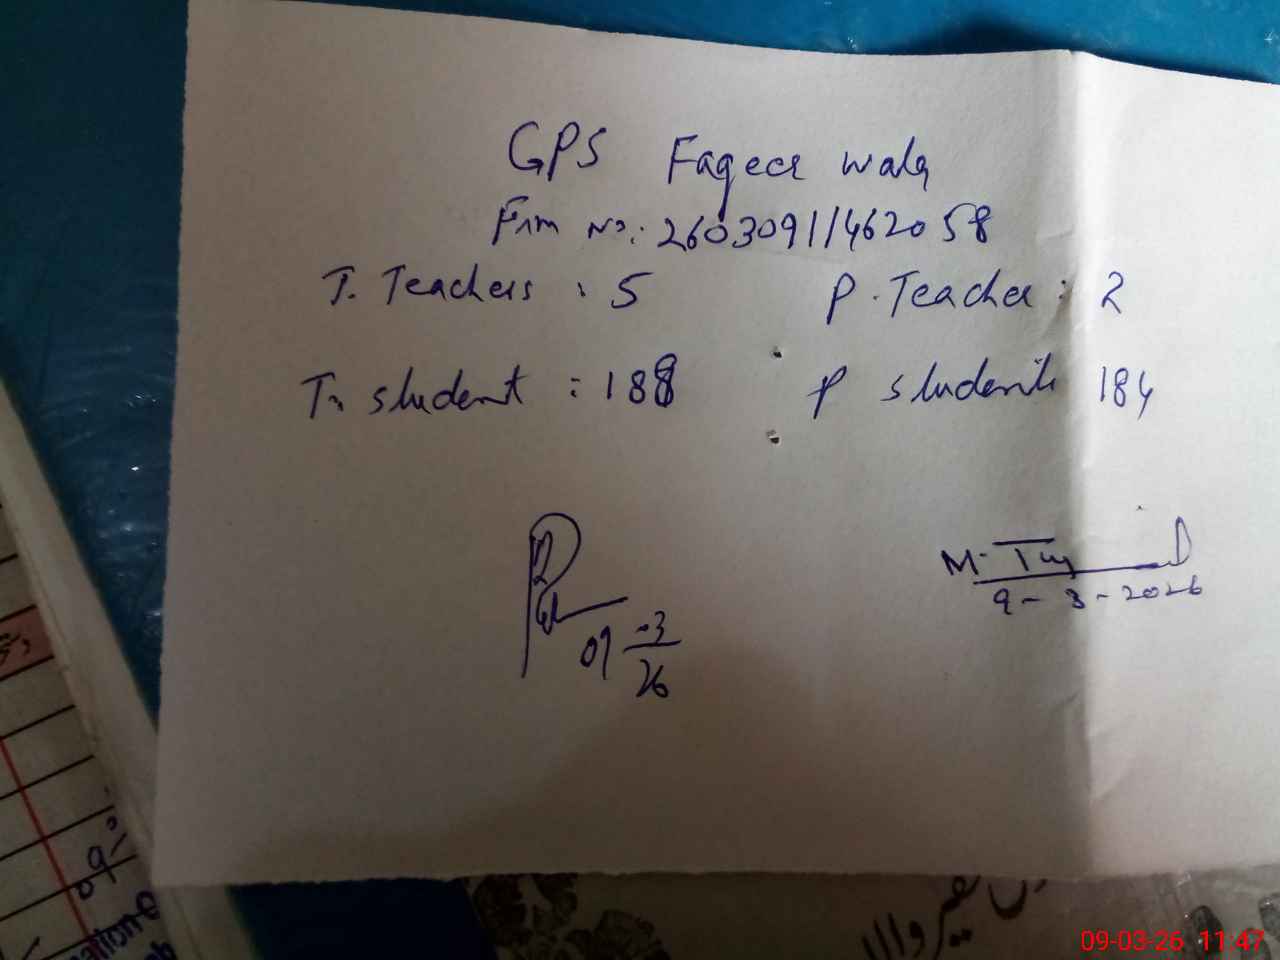 GPS Faqeer wala
Frm No: 26030911462058
T. Teachers : 5 P. Teacher : 2
T. student : 188 P students 184
09-03/26
M.
9-3-2026
فقیر والا
09-03-26 11:47